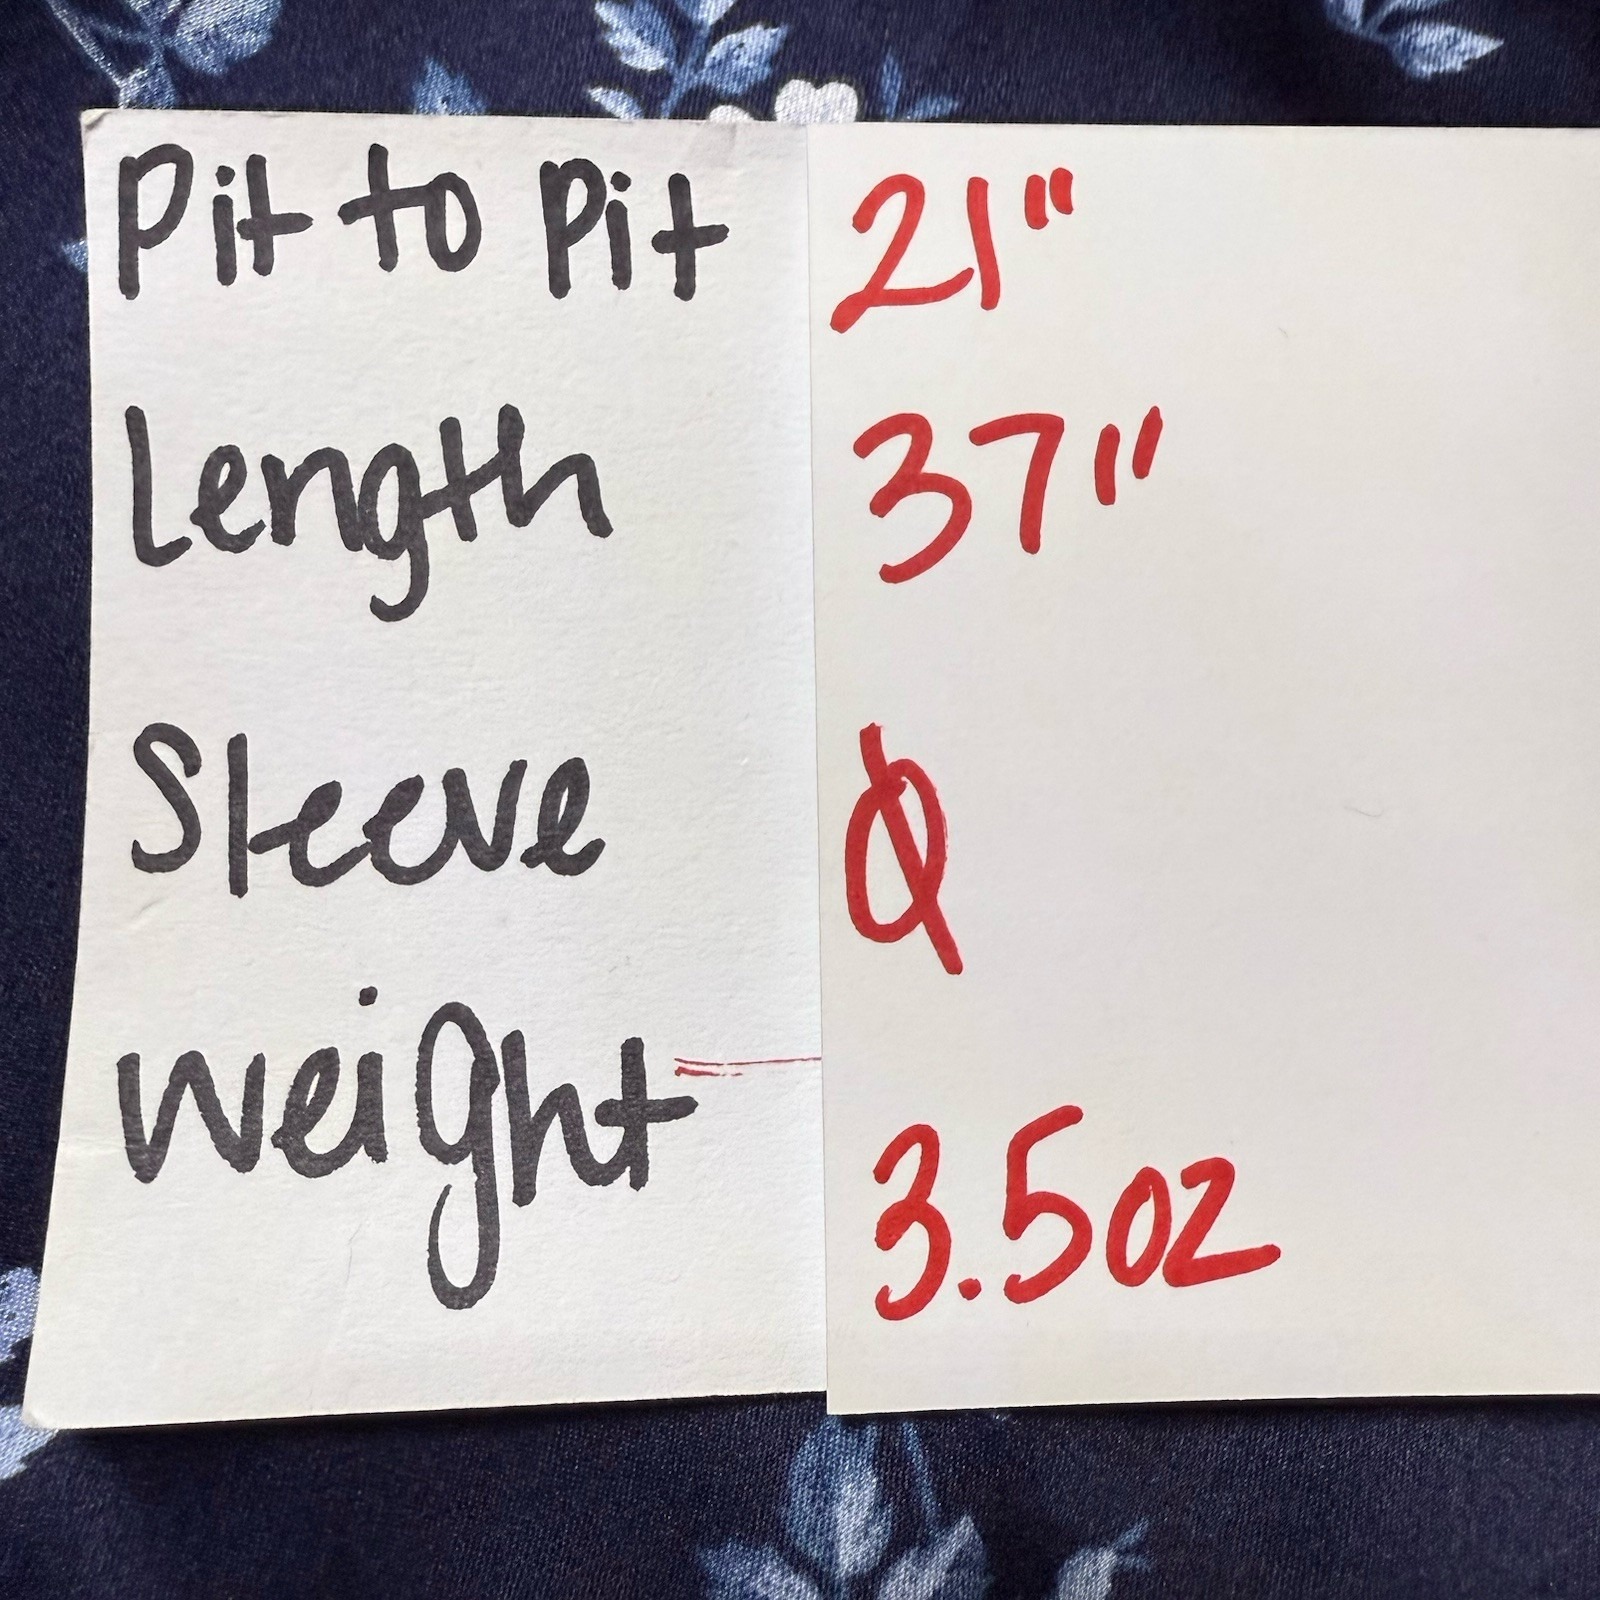 Pit to Pit 21"
Length 37"
Sleeve Ø
Weight 3.5oz